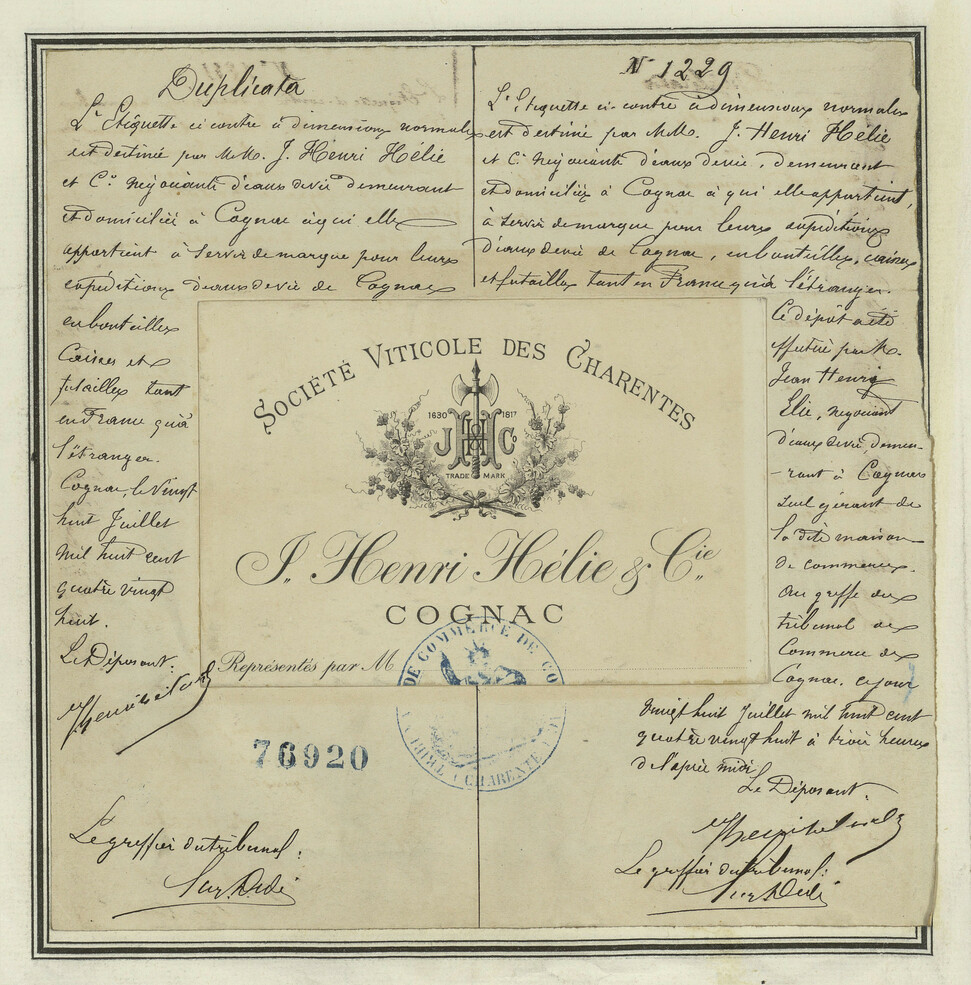 Duplicata
L'Etiquette ci contre à dimensions normales
est destinée par M.M. J. Henri Hélie
et Cie négociants d'eaux de vie demeurant
et domiciliés à Cognac à qui elle
appartient à servir de marque pour leurs
expéditions d'eaux de vie de Cognac
en bouteilles
Caisses et
futailles tant
en France qu'à
l'étranger.
Cognac, le Vingt
huit Juillet
mil huit cent
quatre vingt
huit.
Le Déposant:
76920
Le greffier du tribunal:
No 1229
L'Etiquette ci contre à dimensions normales
est destinée par M.M. J. Henri Hélie
et Cie négociants d'eaux de vie, demeurant
et domiciliés à Cognac à qui elle appartient,
à servir de marque pour leurs expéditions
d'eaux de vie de Cognac, en bouteilles, caisses
et futailles tant en France qu'à l'étranger.
Ce dépôt a été
effectué par M.
Jean Henri
Elie, négociant
d'eaux de vie, demeu-
-rant à Cognac
seul gérant de
la dite maison
de commerce.
Au greffe du
tribunal de
Commerce de
Cognac, ce jour
vingt huit Juillet mil huit cent
quatre vingt huit à trois heures
de l'après midi.
Le Déposant:
Le greffier du tribunal:
SOCIÉTÉ VITICOLE DES CHARENTES
1630 1817
J HH Co
TRADE MARK
J. Henri Hélie & Cie
COGNAC
Représentés par M
DE COMMERCE DE CO
CHARENTE